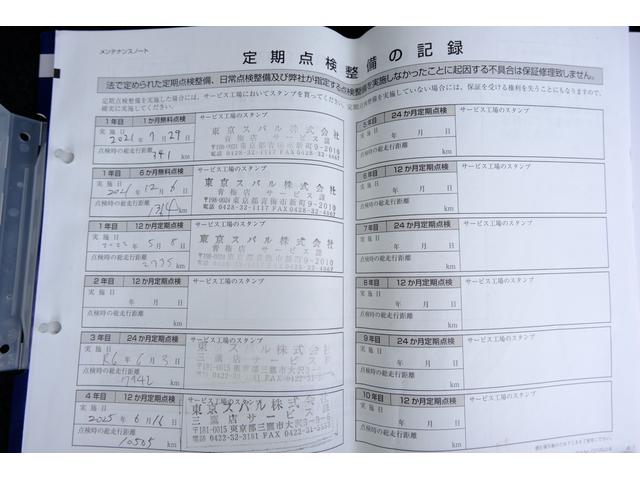 メンテナンスノート
定期点検整備の記録
法で定められた定期点検整備、日常点検整備及び弊社が指定する点検整備を実施しなかったことに起因する不具合は保証修理致しません。
定期点検整備を実施した場合には、サービス工場においてスタンプを買ってください。
確実に実施してください。
1年目 1か月無料点検
サービス工場のスタンプ
実施日
2021年7月29日
点検時の総走行距離
341 km
東京スバル株式会社
青梅店 サービス課
電話 0428-32-1117 FAX 0428-32-4667
1年目 6か月無料点検
サービス工場のスタンプ
実施日
2021年12月6日
点検時の総走行距離
km
東京スバル株式会社
青梅店 サービス課
〒198-0024 東京都青梅市新町9-2010
電話 0428-32-1117 FAX 0428-32-4667
1年目 12か月定期点検
サービス工場のスタンプ
実施日
年5月8日
点検時の総走行距離
2735 km
東京スバル株式会社
青梅店 サービス課
〒198-0024 東京都青梅市新町9-2010
2年目 12か月定期点検
サービス工場のスタンプ
実施日
年 月 日
点検時の総走行距離
km
3年目 24か月定期点検
サービス工場のスタンプ
実施日
R6年6月3日
点検時の総走行距離
7942 km
東京スバル株式会社
三鷹店 サービス課
〒181-0015 東京都三鷹市大沢3-
4年目 12か月定期点検
サービス工場のスタンプ
実施日
2025年6月16日
点検時の総走行距離
10505 km
東京スバル株式会社
三鷹店 サービス課
〒181-0015 東京都三鷹市大沢3-
電話 0422-32-3181 FAX 0422-31-5553
5年目 24か月定期点検
サービス工場のスタンプ
年 月 日
点検時の総走行距離
km
6年目 12か月定期点検
サービス工場のスタンプ
実施日
年 月 日
点検時の総走行距離
km
7年目 24か月定期点検
サービス工場のスタンプ
実施日
年 月 日
点検時の総走行距離
km
8年目 12か月定期点検
サービス工場のスタンプ
実施日
年 月 日
点検時の総走行距離
km
9年目 24か月定期点検
サービス工場のスタンプ
実施日
年 月 日
点検時の総走行距離
km
10年目 12か月定期点検
サービス工場のスタンプ
実施日
年 月 日
点検時の総走行距離
km